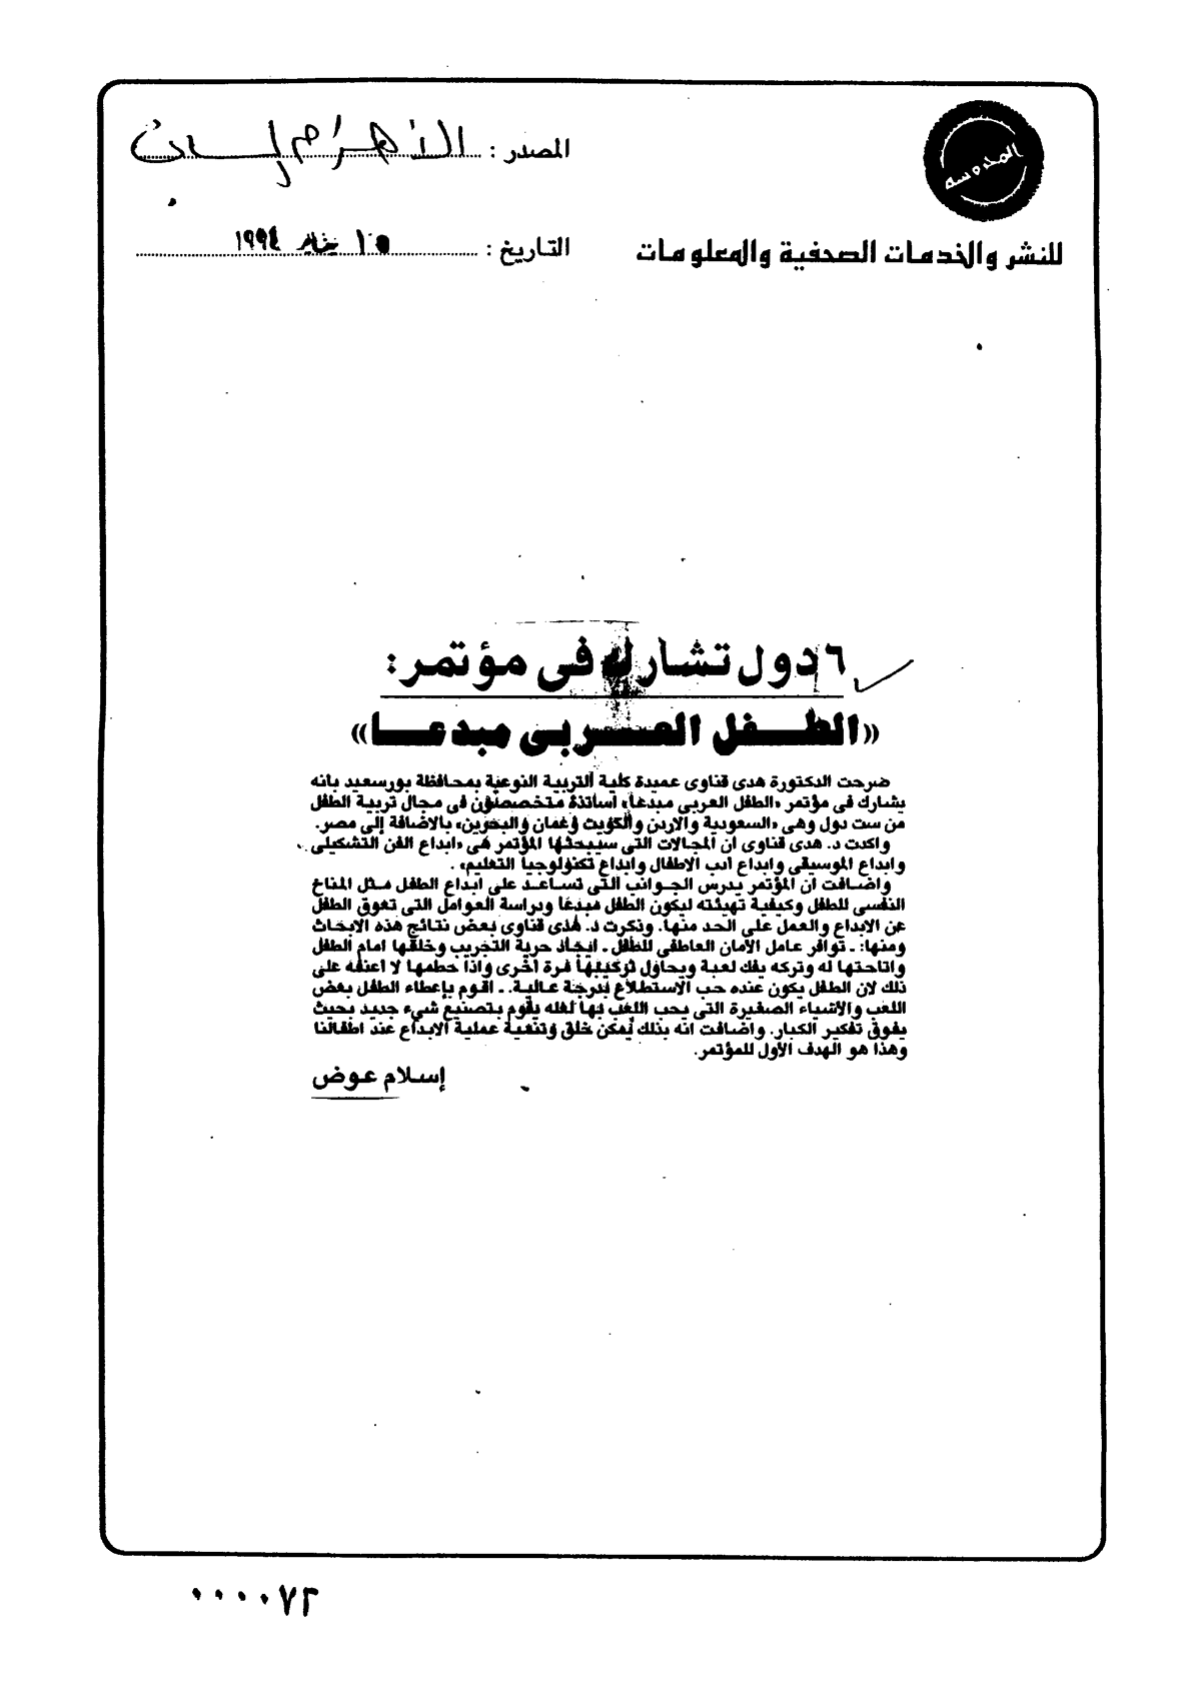 المصدر : الأهرام المسائى
المدرسة
التاريخ : ١٥ يناير ١٩٩٤
للنشر والخدمات الصحفية والمعلومات
٦ دول تشارك فى مؤتمر:
«الطفل العربى مبدعا»
صرحت الدكتورة هدى قناوى عميدة كلية التربية النوعية بمحافظة بورسعيد بانه
يشارك فى مؤتمر «الطفل العربى مبدعا» أساتذة متخصصون فى مجال تربية الطفل
من ست دول وهى «السعودية والاردن والكويت وعمان والبحرين» بالاضافة إلى مصر.
واكدت د. هدى قناوى ان المجالات التى سيبحثها المؤتمر هى «ابداع الفن التشكيلى
وابداع الموسيقى وابداع ادب الاطفال وابداع تكنولوجيا التعليم» .
واضافت ان المؤتمر يدرس الجوانب التى تساعد على ابداع الطفل مثل المناخ
النفسى للطفل وكيفية تهيئته ليكون الطفل مبدعا ودراسة العوامل التى تعوق الطفل
عن الابداع والعمل على الحد منها. وذكرت د. هدى قناوى بعض نتائج هذه الابحاث
ومنها: ـ توافر عامل الأمان العاطفى للطفل ـ ايجاد حرية التجريب وخلقها امام الطفل
واتاحتها له وتركه يفك لعبة ويحاول تركيبها مرة أخرى واذا حطمها لا اعنفه على
ذلك لان الطفل يكون عنده حب الاستطلاع بدرجة عالية. ـ اقوم بإعطاء الطفل بعض
اللعب والأشياء الصغيرة التى يحب اللعب بها لعله يقوم بتصنيع شىء جديد بحيث
يفوق تفكير الكبار. واضافت انه بذلك يمكن خلق وتنمية عملية الابداع عند اطفالنا
وهذا هو الهدف الأول للمؤتمر.
إسلام عوض
٠٠٠٠٧٢